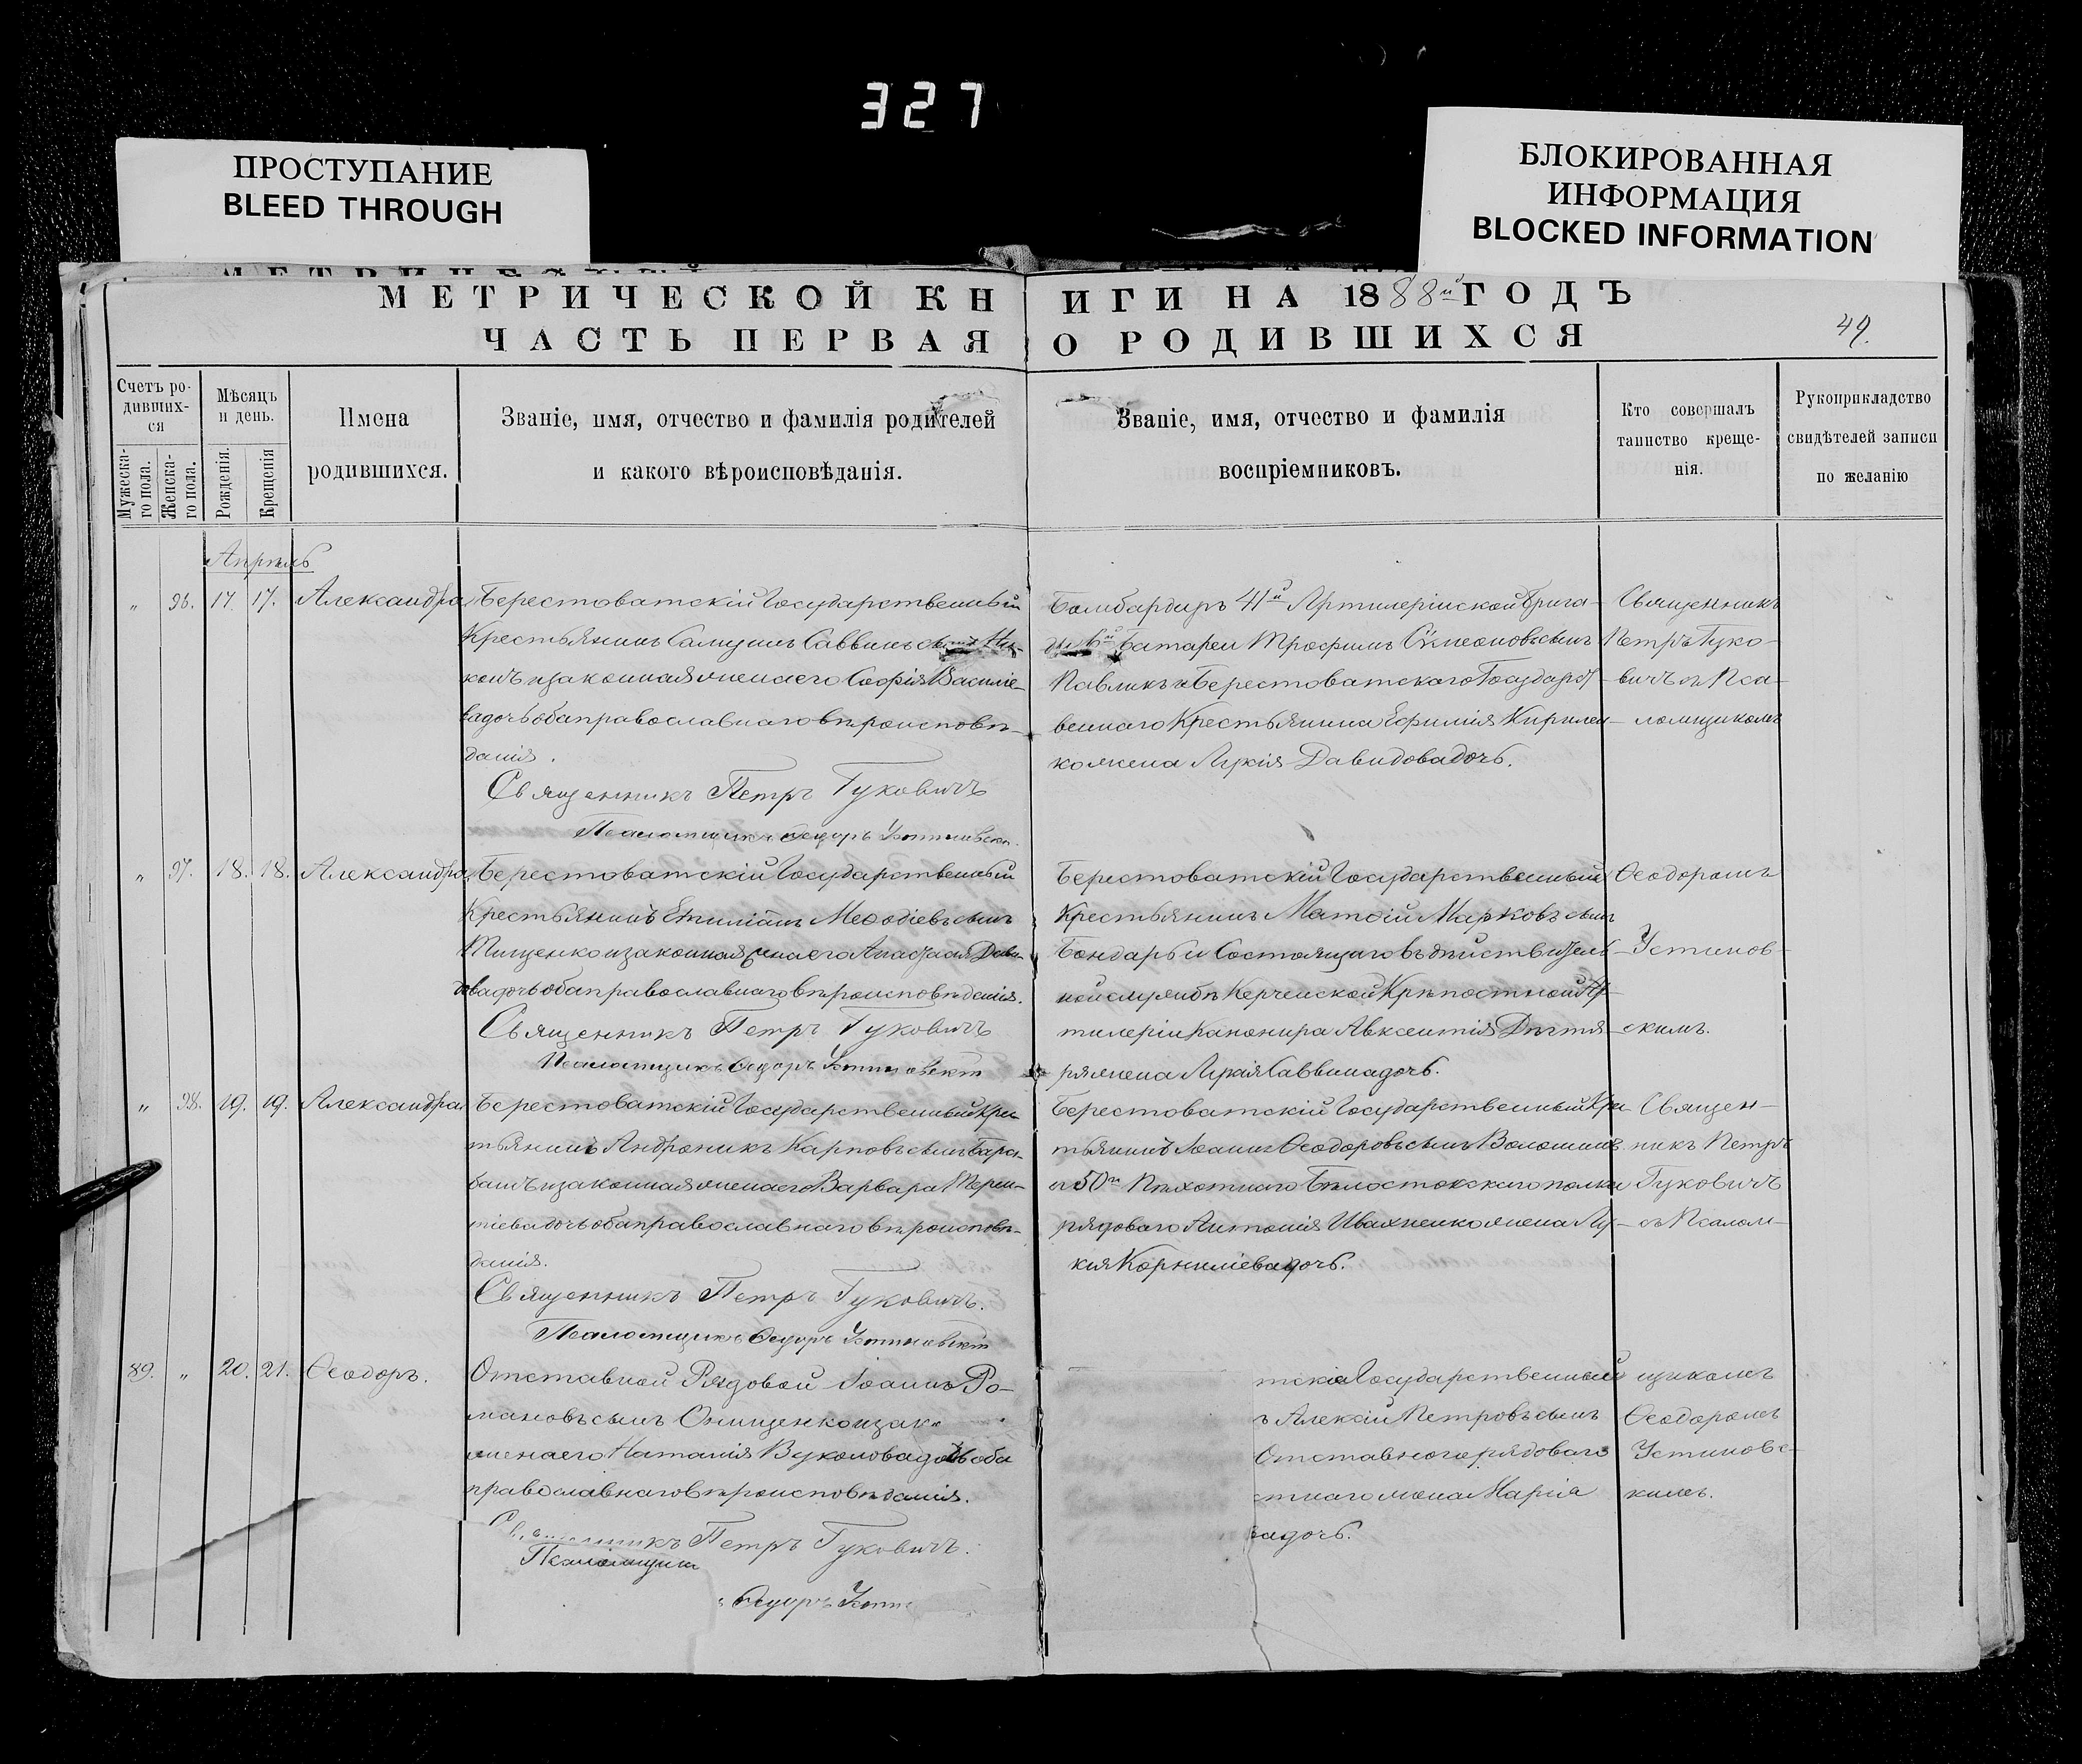 327
ПРОСТУПАНИЕ
BLEED THROUGH
БЛОКИРОВАННАЯ
ИНФОРМАЦИЯ
BLOCKED INFORMATION
МЕТРИЧЕСКОЙ КНИГИ НА 1888й ГОДЪ
ЧАСТЬ ПЕРВАЯ О РОДИВШИХСЯ
49.
Счетъ ро-
дивших-
ся
Мужеска-
го пола.
Женска-
го пола.
Мѣсяцъ
и день.
Рожденія.
Крещенія
Имена
родившихся.
Званіе, имя, отчество и фамилія родителей
и какого вѣроисповѣданія.
Званіе, имя, отчество и фамилія
воспріемниковъ.
Кто совершалъ
таинство креще-
нія.
Рукоприкладство
свидѣтелей записи
по желанію
Апрѣль
„ 96. 17. 17. Александра
Берестоватскій Государственный
Крестьянинъ Самуилъ Саввинъ сынъ
и законная жена его Софія Василіе-
ва дочь оба православнаго вѣроисповѣ-
данія.
Священникъ Петръ Гуковичъ
Псаломщикъ Ѳедоръ
Бомбардиръ 41й Артилерійской Брига-
ды 6й Батареи Трофимъ Сѵмеоновъ сынъ
Павликъ и Берестоватскаго Государст-
веннаго Крестьянина Ефимія Кирилен-
ко жена Лукія Давидова дочь.
Священникъ
Петръ Гуко-
вичъ съ Пса-
ломщикомъ
„ 97. 18. 18. Александра
Берестоватскій Государственный
Крестьянинъ Емиліанъ Меѳодіевъ сынъ
Тищенко и законная жена его Анастасія Дави-
дова дочь оба православнаго вѣроисповѣданія.
Священникъ Петръ Гуковичъ
Псаломщикъ Ѳедоръ Устиновскій
Берестоватскій Государственный
Крестьянинъ Матѳій Марковъ сынъ
Бондарь и Состоящаго въ дѣйствитель-
ной службѣ Керченской Крѣпостной Ар-
тилеріи Канонира Авксентія Дѣгтя-
ря жена Лукія Саввина дочь.
Ѳеодоромъ
Устинов-
скимъ.
„ 98. 19. 19. Александра
Берестоватскій Государственный Крес
тьянинъ Андроникъ Карповъ сынъ
и законная жена его Варвара Терен-
тіева дочь оба православнаго вѣроисповѣ-
данія.
Священникъ Петръ Гуковичъ.
Псаломщикъ Ѳедоръ Устиновскій
Берестоватскій Государственный Крес
тьянинъ Іоаннъ Ѳеодоровъ сынъ Волошинъ
и 50го Пѣхотнаго Бѣлостокскаго полка
рядоваго Антонія Ивахненко жена Лу-
кія Корниліева дочь.
Священ-
никъ Петръ
Гуковичъ
съ Псалом-
89. „ 20. 21. Ѳеодоръ.
Отставной Рядовой Іоаннъ Ро-
мановъ сынъ Онищенко и зак
жена его Наталія Вуколова дочь оба
православнаго вѣроисповѣданія.
Священникъ Петръ Гуковичъ.
Псаломщикъ
Ѳедоръ Устин
тскій Государственный
ъ Алексій Петровъ сынъ
Отставного рядоваго
жена Марія
ва дочь.
щикомъ
Ѳеодоромъ
Устиновс-
кимъ.